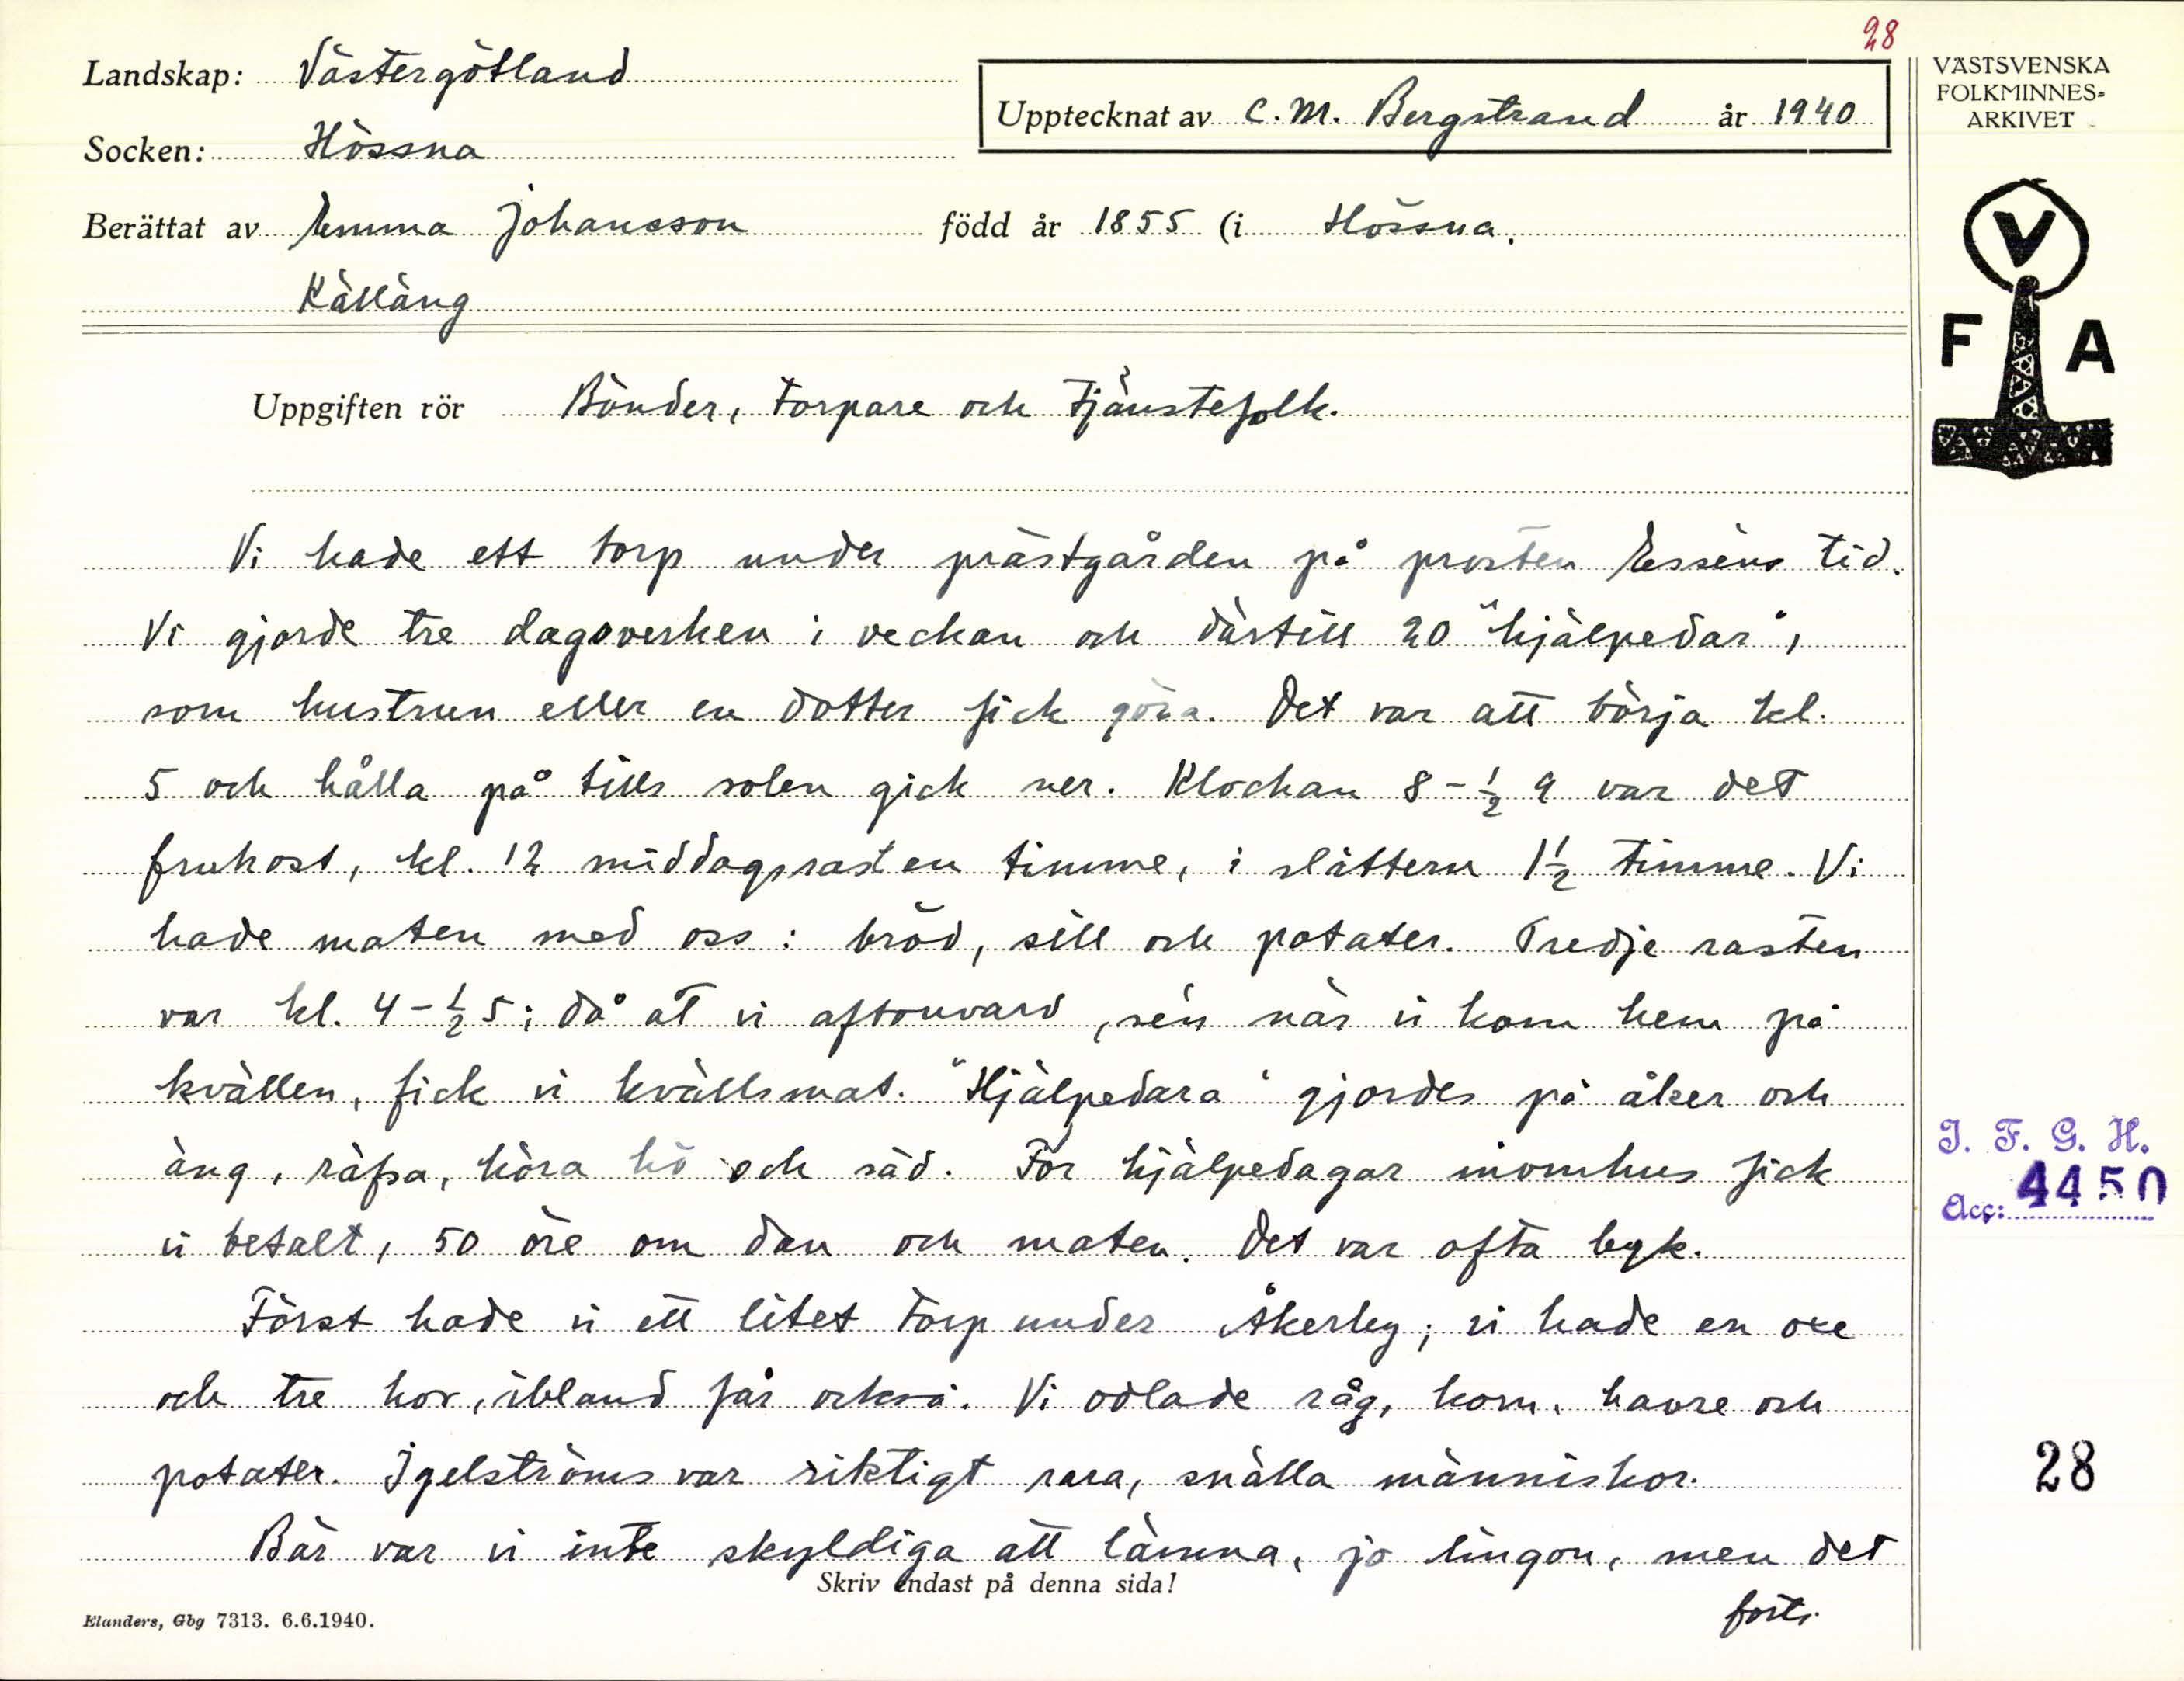 28
Landskap: Västergötland
Upptecknat av C. M. Bergstrand år 1940
VÄSTSVENSKA
FOLKMINNES-
ARKIVET
Socken: Hössna
Berättat av Emma Johansson född år 1855 (i Hössna.
Källäng
V
F A
Uppgiften rör Bönder, torpare och tjänstefolk.
Vi hade ett torp under prästgården på prosten Esséns tid.
Vi gjorde tre dagsverken i veckan och därtill 20 "hjälpedar",
som hustrun eller en dotter fick göra. Det var att börja kl.
5 och hålla på tills solen gick ner. Klockan 8 - ½ 9 var det
frukost, kl. 12 middagsrast en timme, i slåttern 1½ timme. Vi
hade maten med oss: bröd, sill och potater. Tredje rasten
var kl. 4 - ½ 5; då åt vi aftonvard, sén när vi kom hem på
kvällen, fick vi kvällsmat. "Hjälpedara" gjordes på åker och
äng, räfsa, köra hö och säd. För hjälpedagar inomhus fick
vi betalt, 50 öre om dan och maten. Det var ofta byk.
Först hade vi ett litet torp under Åkerby; vi hade en oxe
och tre kor, ibland får också. Vi odlade råg, korn, havre och
potater. Igelströms var riktigt rara, snälla människor.
Bär var vi inte skyldiga att lämna, jo lingon, men det
forts.
Skriv endast på denna sida!
Elanders, Gbg 7313. 6.6.1940.
I. F. G. H.
Acc: 4450
28